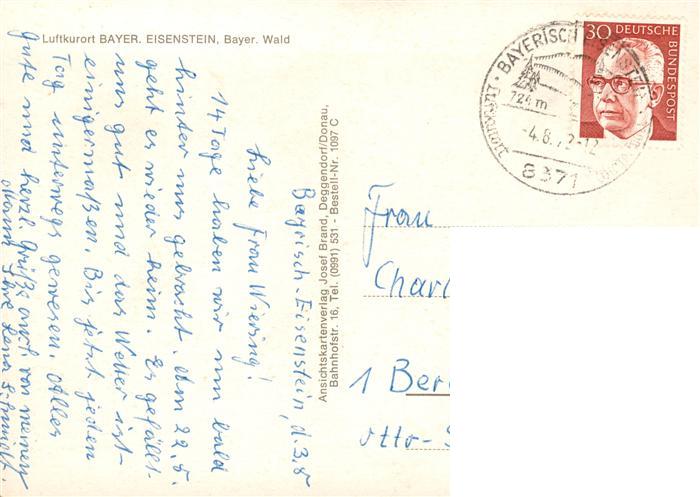 Luftkurort BAYER. EISENSTEIN, Bayer. Wald
30 DEUTSCHE
BUNDESPOST
BAYERISCH EISENSTEIN
Luftkurort
724 m
-4.8.72-12
8371
Ansichtskartenverlag Josef Brand, Deggendorf/Donau,
Bahnhofstr. 16, Tel. (0991) 531 - Bestell-Nr. 1097 C
Bayrisch-Eisenstein, d. 3.8
Liebe Frau
14 Tage haben wir nun bald
hinter uns gebracht. Am 22.8.
geht es wieder heim. Es gefällt
uns gut und das Wetter ist
einigermaßen. Bis jetzt jeden
Tag unterwegs gewesen. Alles
Gute und herzl. Grüße auch von meinem
Mann Ihre Lena Schmidt.
Frau
Charl
1 Ber
Otto-S